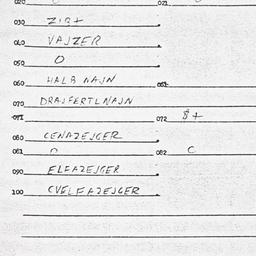 020 021
030 ZIBT
040 VAJZER
050 O
060 HALB NAJN 061
070 DRAJFERTLNAJN
071 072 $+
080 CENAZEJGER
081 082 C
090 ELFAZEJGER
100 CVELFAZEJGER